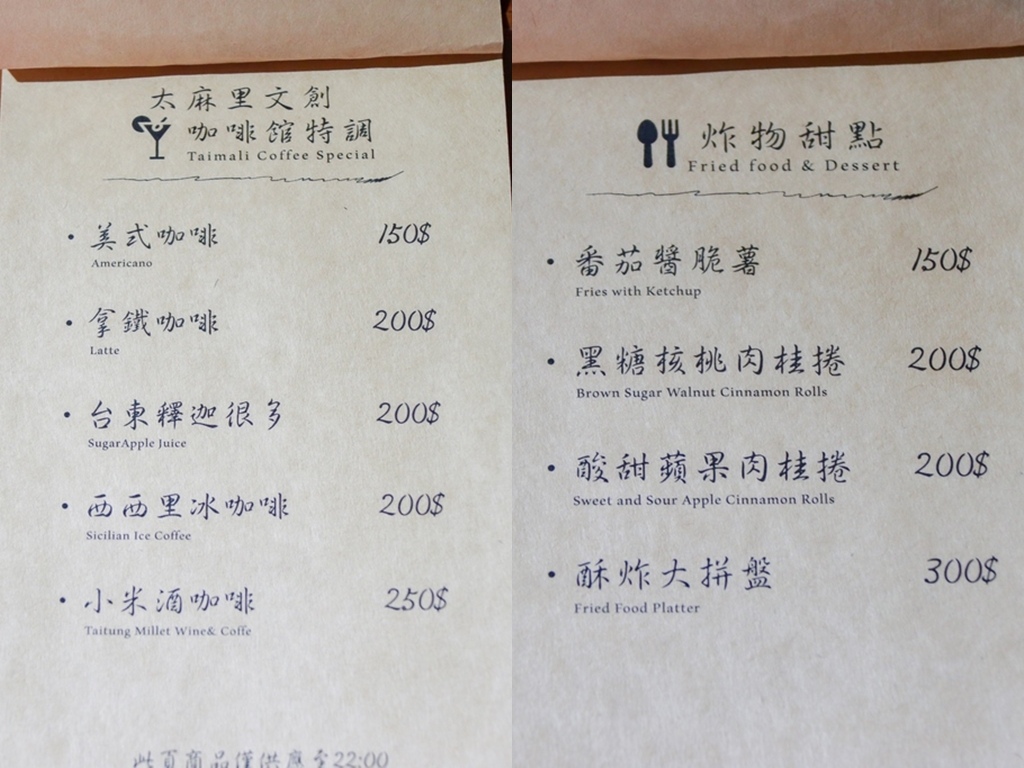 太麻里文創
咖啡館特調
Taimali Coffee Special
• 美式咖啡 150$
Americano
• 拿鐵咖啡 200$
Latte
• 台東釋迦很多 200$
SugarApple Juice
• 西西里冰咖啡 200$
Sicilian Ice Coffee
• 小米酒咖啡 250$
Taitung Millet Wine& Coffe
此頁商品僅供應至22:00
炸物甜點
Fried food & Dessert
• 番茄醬脆薯 150$
Fries with Ketchup
• 黑糖核桃肉桂捲 200$
Brown Sugar Walnut Cinnamon Rolls
• 酸甜蘋果肉桂捲 200$
Sweet and Sour Apple Cinnamon Rolls
• 酥炸大拼盤 300$
Fried Food Platter